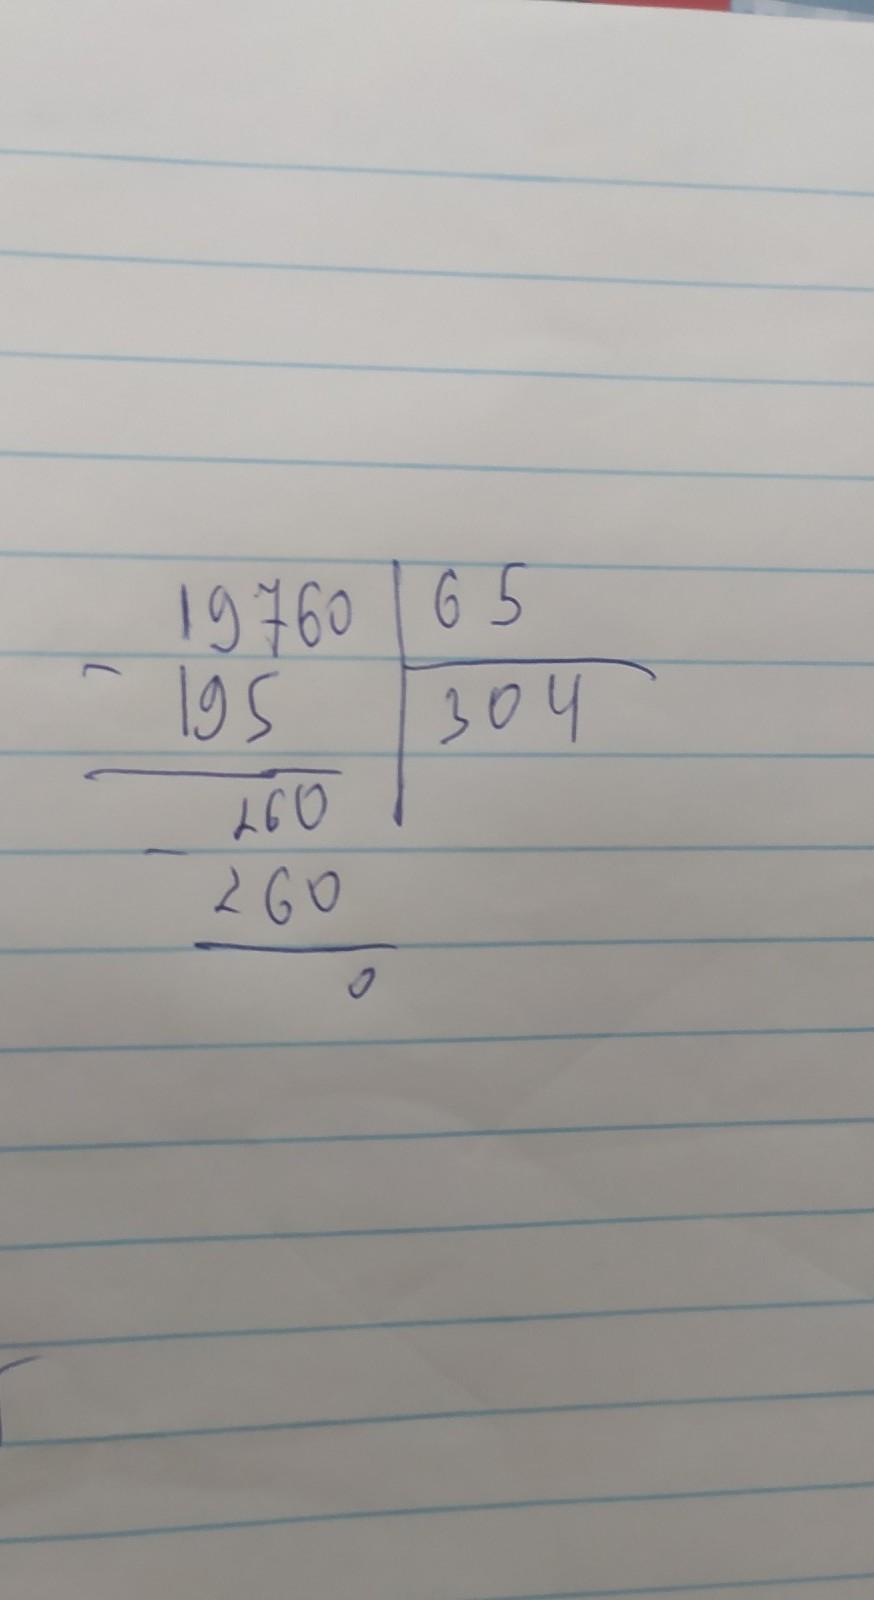 19760 | 65
- 195 | 304
260
- 260
0